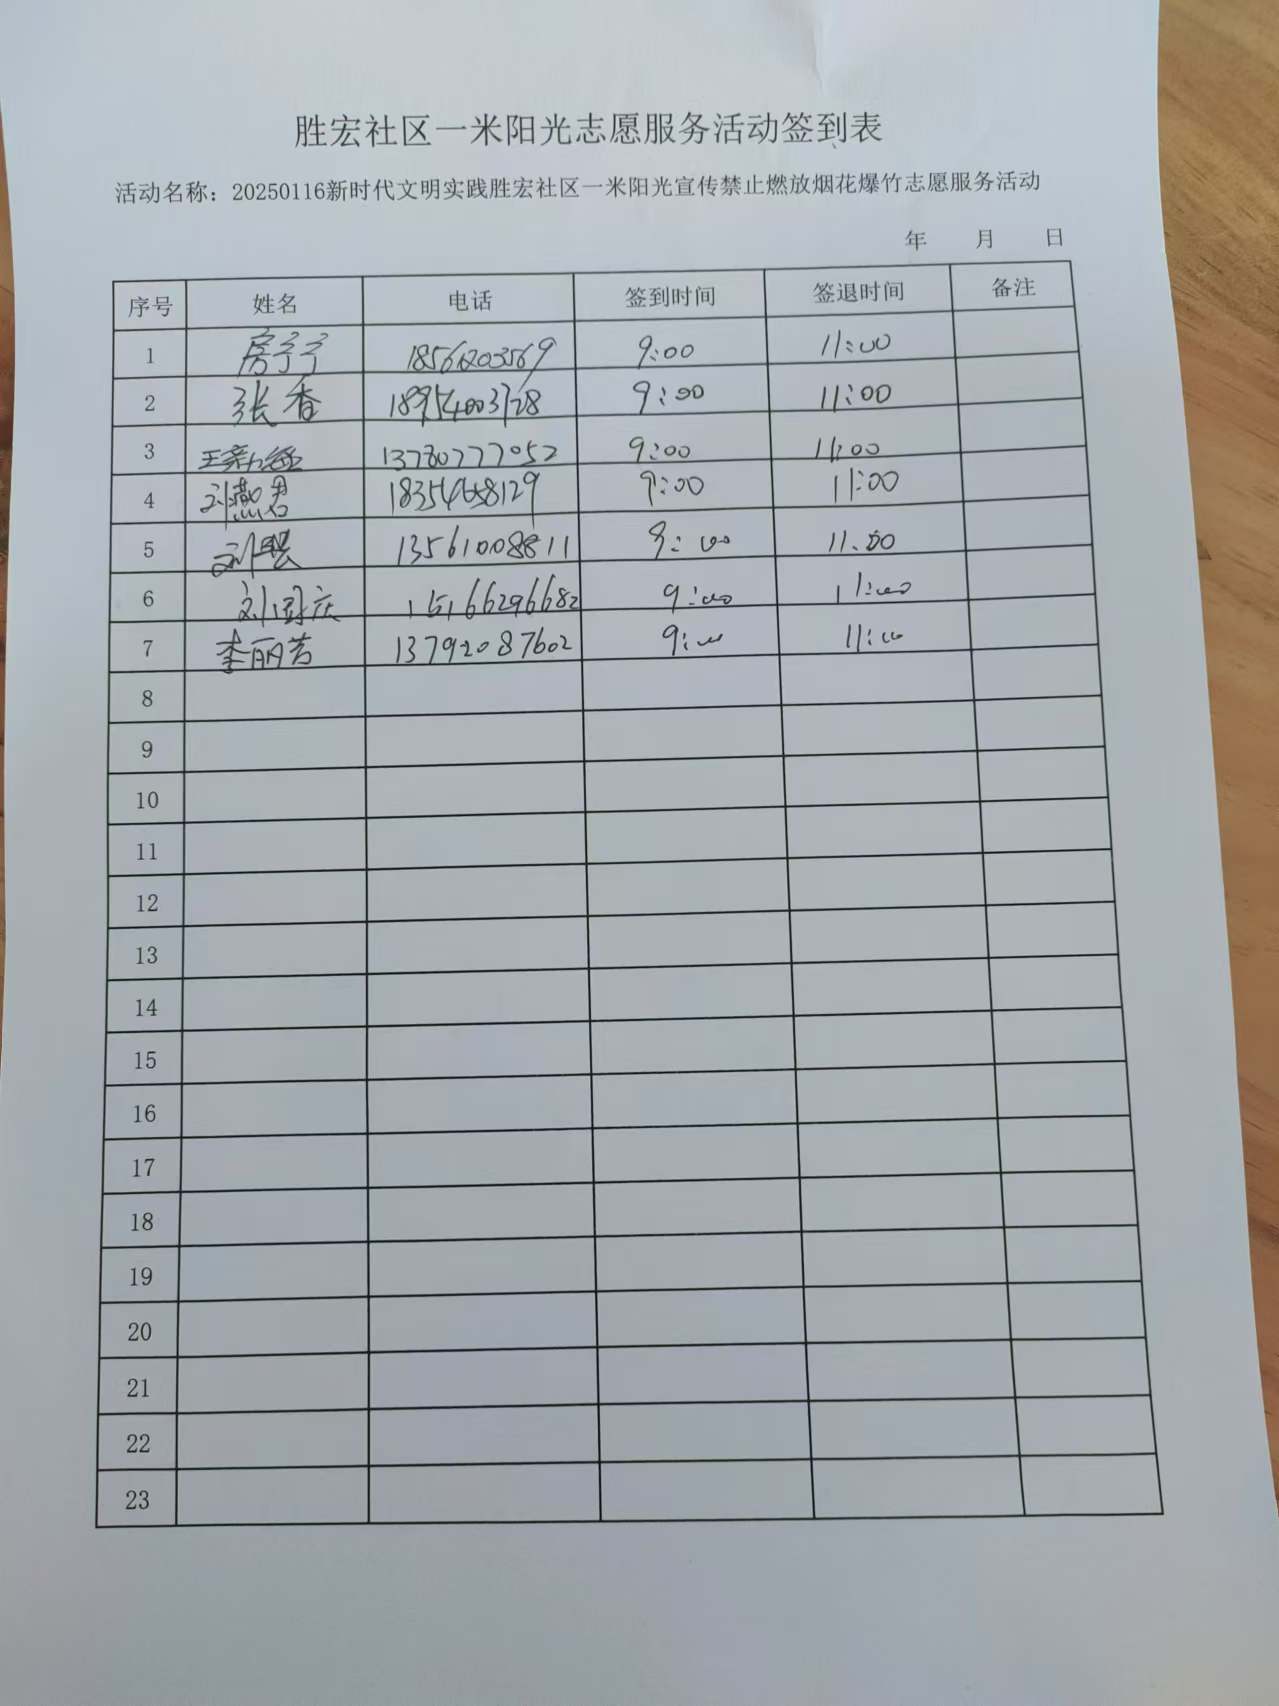 胜宏社区一米阳光志愿服务活动签到表
活动名称：20250116新时代文明实践胜宏社区一米阳光宣传禁止燃放烟花爆竹志愿服务活动
年 月 日
序号 姓名 电话 签到时间 签退时间 备注
1 房宁宁 9:00 11:00
2 张香 18954003728 9:00 11:00
3 13780777052 9:00 11:00
4 刘燕君 9:00 11:00
5 13561008811 9:00 11:00
6 刘国庆 15166296682 9:00 11:00
7 李丽芳 13792087602 9:00 11:00
8
9
10
11
12
13
14
15
16
17
18
19
20
21
22
23